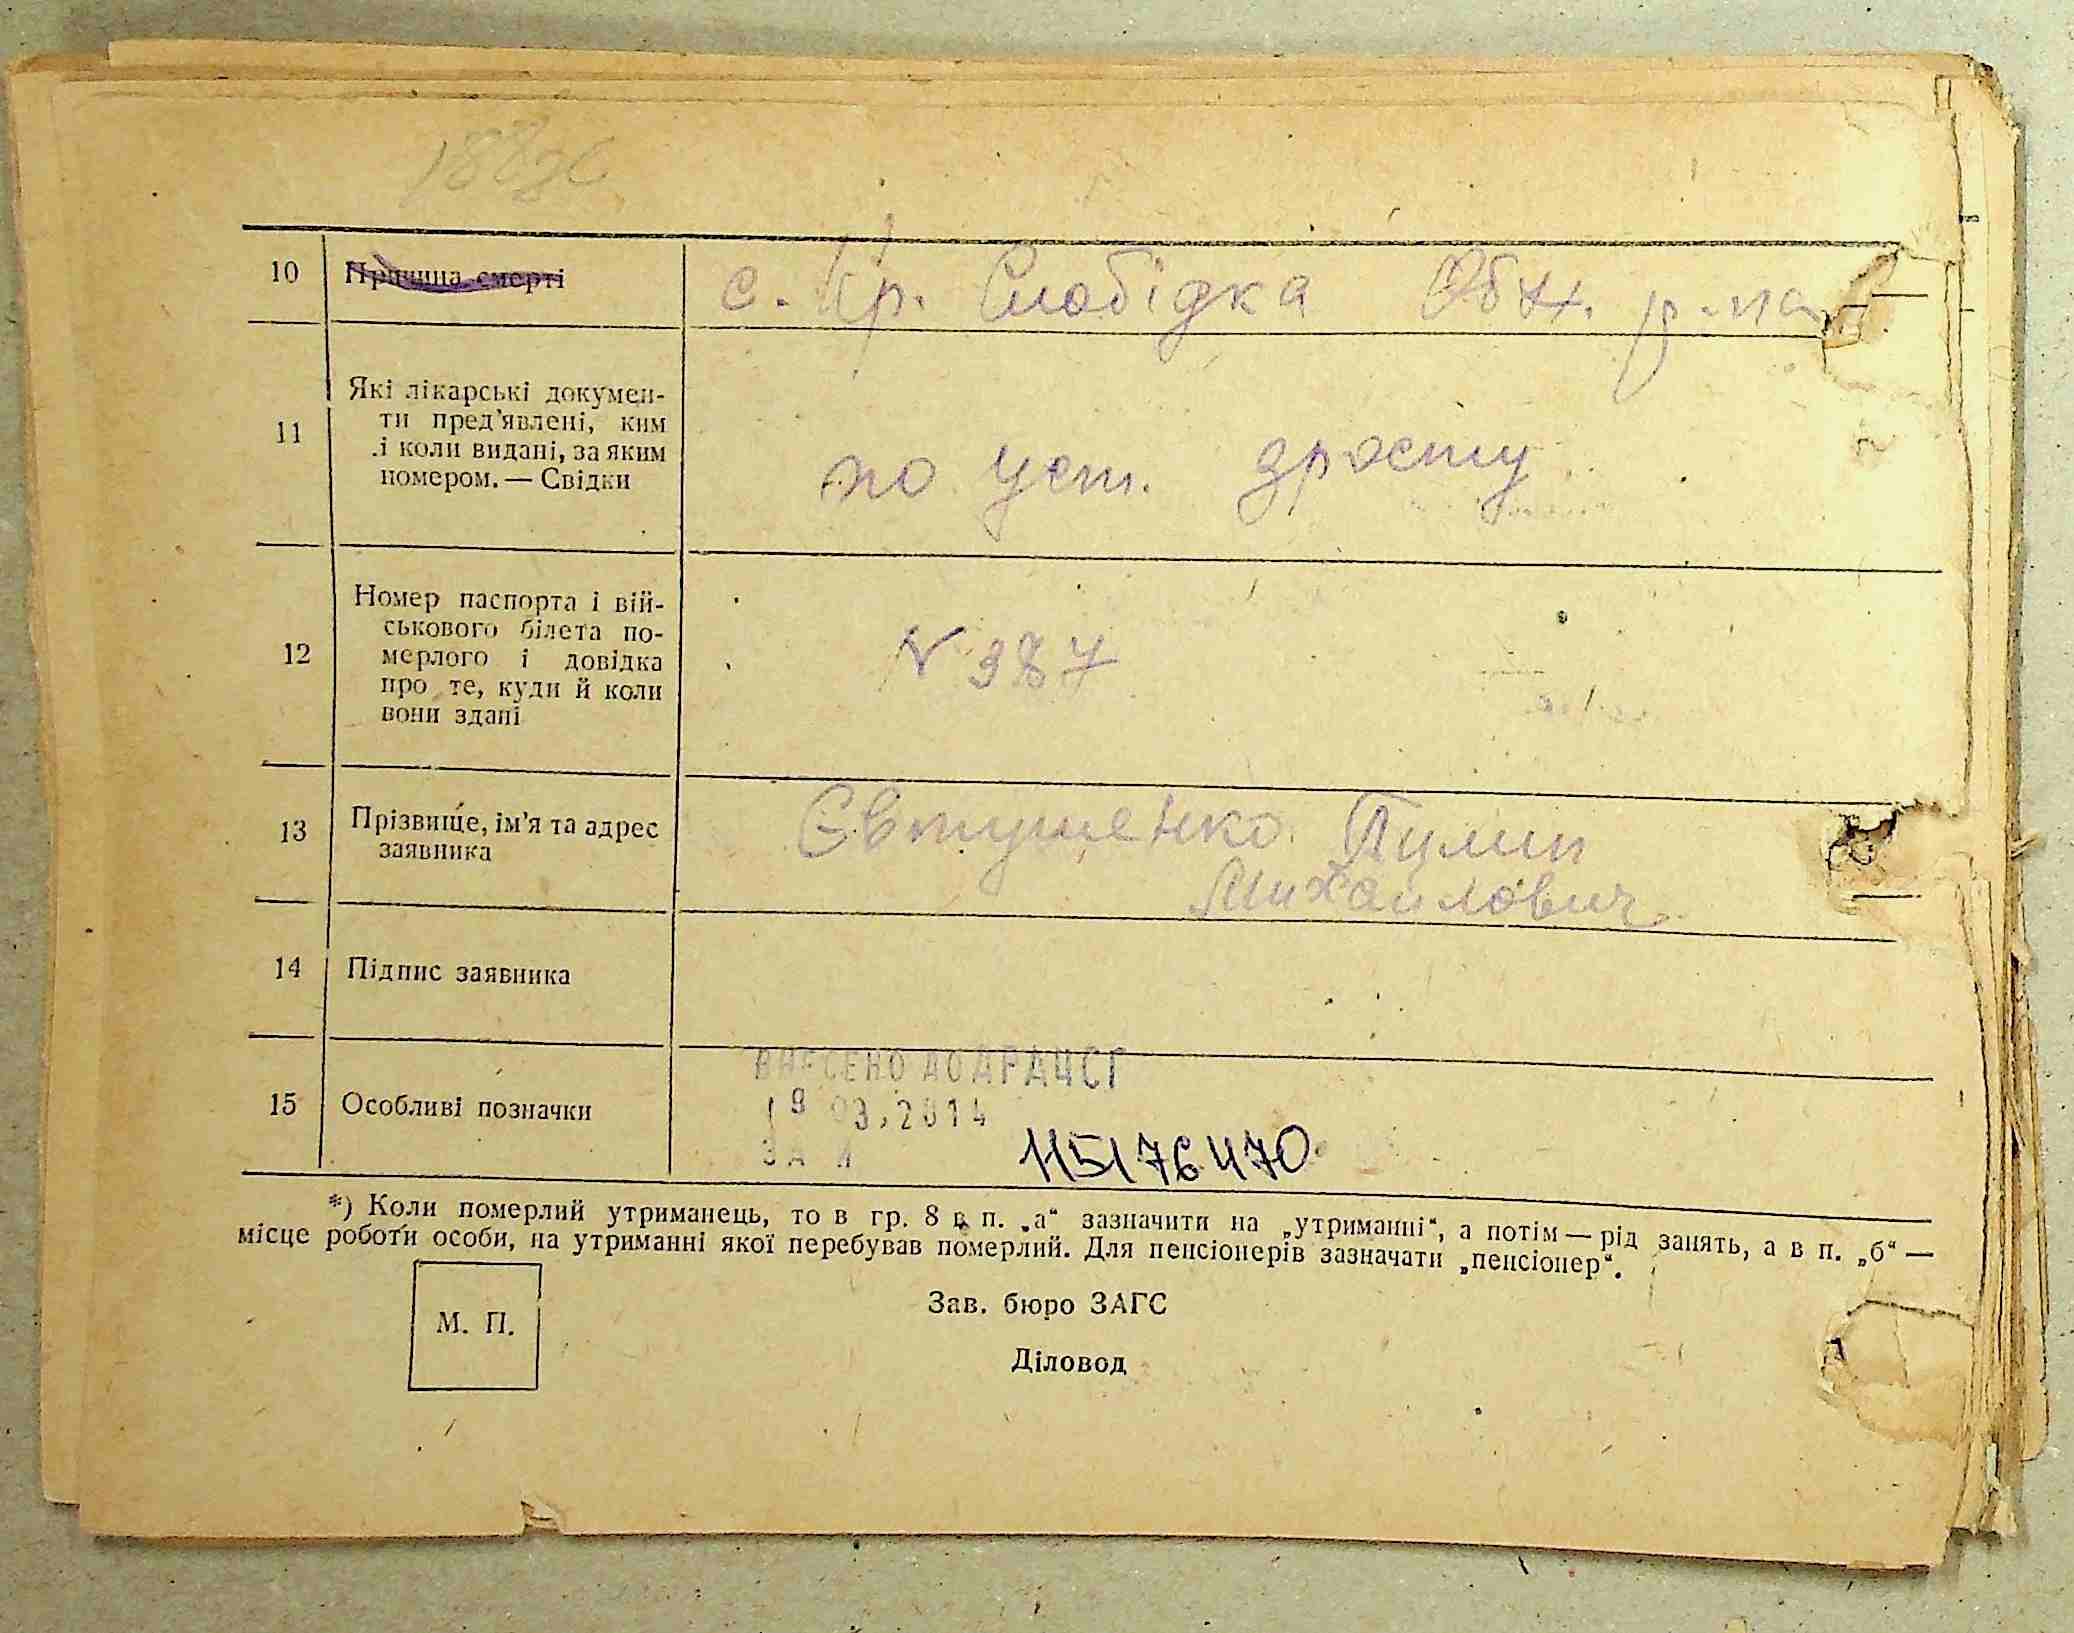 10 Причина смерті с. Кр. Слобідка Обух. р-на
Які лікарські докумен-
ти пред'явлені, ким
11 і коли видані, за яким
номером. — Свідки
по уст.
Номер паспорта і вій-
ськового білета по-
12 мерлого і довідка
про те, куди й коли
вони здані
N 387
13 Прізвище, ім'я та адрес
заявника
Євтушенко
Михайлович
14 Підпис заявника
15 Особливі позначки
ВНЕСЕНО ДО ДРАЦСГ
19 03.2014
ЗА №
115176470
*) Коли померлий утриманець, то в гр. 8 в п. „а“ зазначити на „утриманні“, а потім — рід занять, а в п. „б“ —
місце роботи особи, на утриманні якої перебував померлий. Для пенсіонерів зазначати „пенсіонер“.
М. П.
Зав. бюро ЗАГС
Діловод